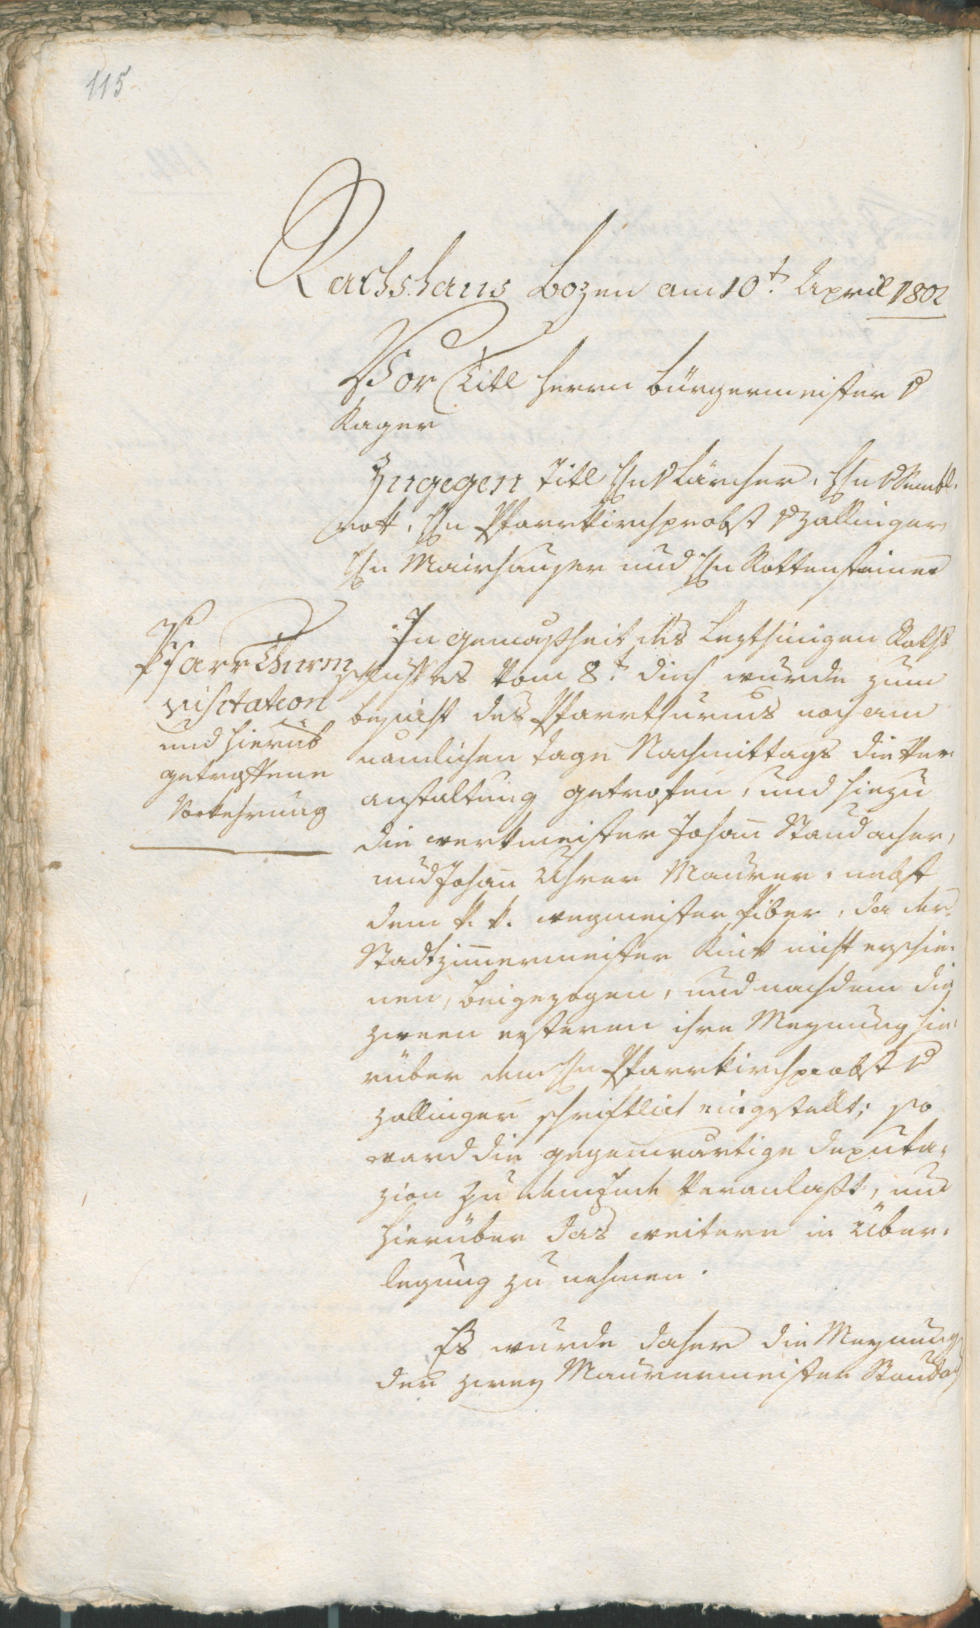 115
Rathshaus Bozen am 10t. April 1802
Vor Titl Herrn Bürgermeister v
Kager
Zugegen Titl Hn v Lürcher, Hn v
rott, Hn Pfarrkirchprobst v Zallinger
Hn Mairhauser und Hn Rottensteiner
Pfarr Thurm
visitation
und hierüb
getroffene
Vorkehrung
In Gemäßheit des letzthinigen Raths
schlußes vom 8t. dieß wurde zum
besicht des Pfarrthurms noch am
nämlichen tage Nachmittags die Ver
anstaltung getrofen, und hiezu
die werkmeister Johan̄ Staudacher,
und Johan̄ Uhrer Maurer, nebst
dem k. k. wegmeister Piber, da der
Stadtzim̄ermeister nicht erschie-
nen, beigezogen, und nachdem die
zween ersteren ihre Meynung hie-
rüber dem Hn Pfarrkirchprobst v
Zallinger schriftlich eingestellt; so
ward die gegenwärtige Deputa-
zion zu dem Ende veranlaßt, um
hierüber das weitere in Über-
legung zu nehmen.
Es wurde daher die Meynung
der zwey Maurermeister Staudach